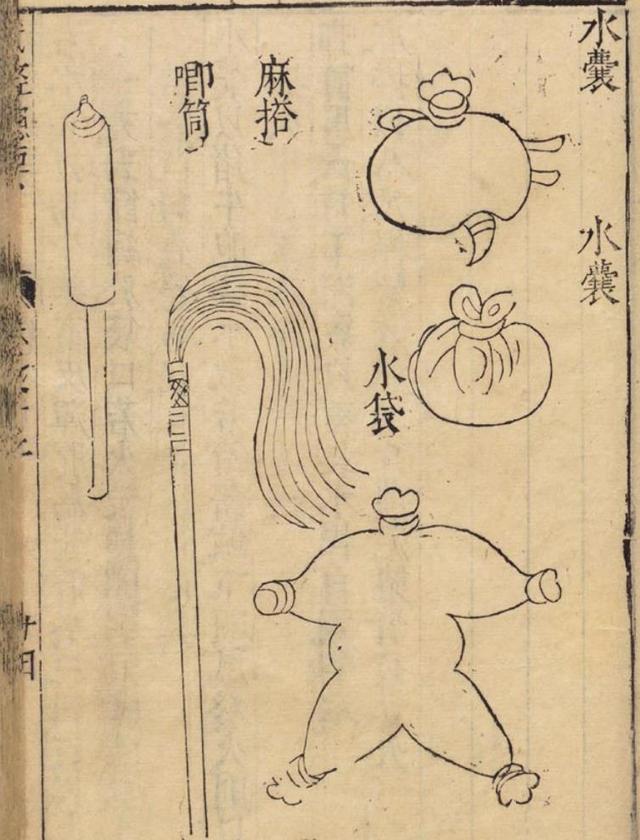 水囊
水囊
水袋
麻搭
喞筒